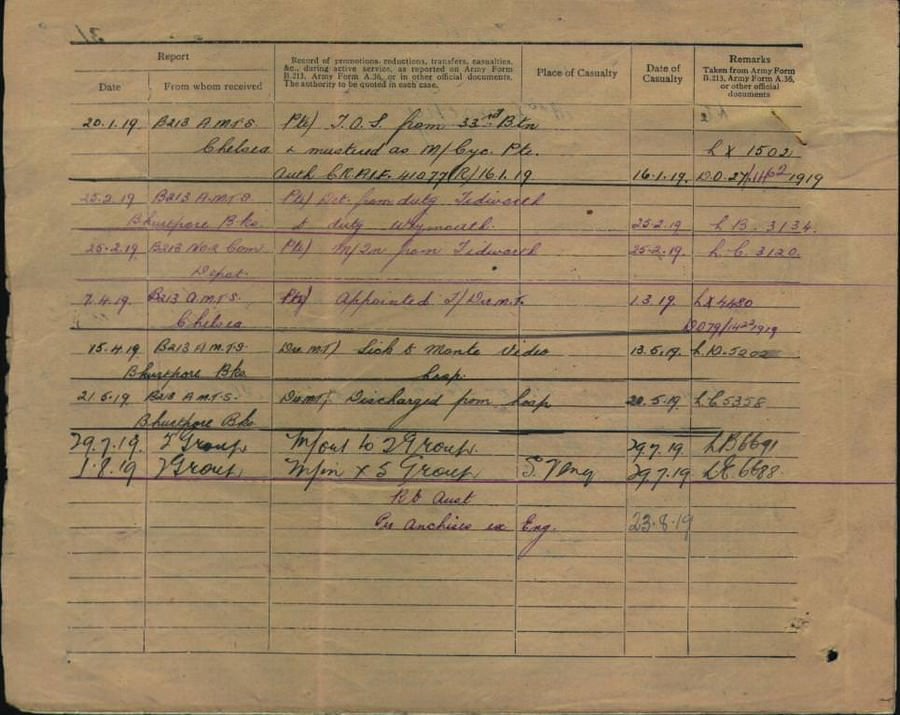 Report
Date
From whom received
Record of promotions, reductions, transfers, casualties,
&c., during active service, as reported on Army Form
B.213, Army Form A.36, or in other official documents.
The authority to be quoted in each case.
Place of Casualty
Date of
Casualty
Remarks
Taken from Army Form
B.213, Army Form A.36,
or other official
documents
20.1.19. B213 A.M.T.S. Pte) T.O.S. from 33rd Btn
Chelsea & mustered as M/Cyc. Pte. LX 1502
Auth C.R. A.I.F. 41077 (R/16.1.19 16.1.19. D.O. 27/1162 1919
25.2.19 B213 A.M.T.S. Pte) Det. from duty Tidworth
Bhurtpore Bks to duty Weymouth. 25.2.19 L B. 3134.
25.2.19. B213 No 2 Com. Pte) M/In from Tidworth 25.2.19. L. C. 3120.
Depot.
7.4.19. B213 A.M.T.S. Pte) Appointed T/Dvr M.T. 1.3.19. LX4480
Chelsea DO79/1423 1919
15.4.19 B213 A.M.T.S Dvr MT) Sick to Monte Video 13.5.19. L.D.
Bhurtpore Bks hosp.
21.5.19. B213 A.M.T.S. Dvr MT) Discharged from hosp 20.5.19. LE5358
Bhurtpore Bks
29.7.19. 2 Group M/out to 2 Group. 29.7.19. LB6691
1.8.19 2 Group M/in x 5 Group 29.7.19 LE.6688
Rt Aust
Per Anchises ex Eng. 23.8.19